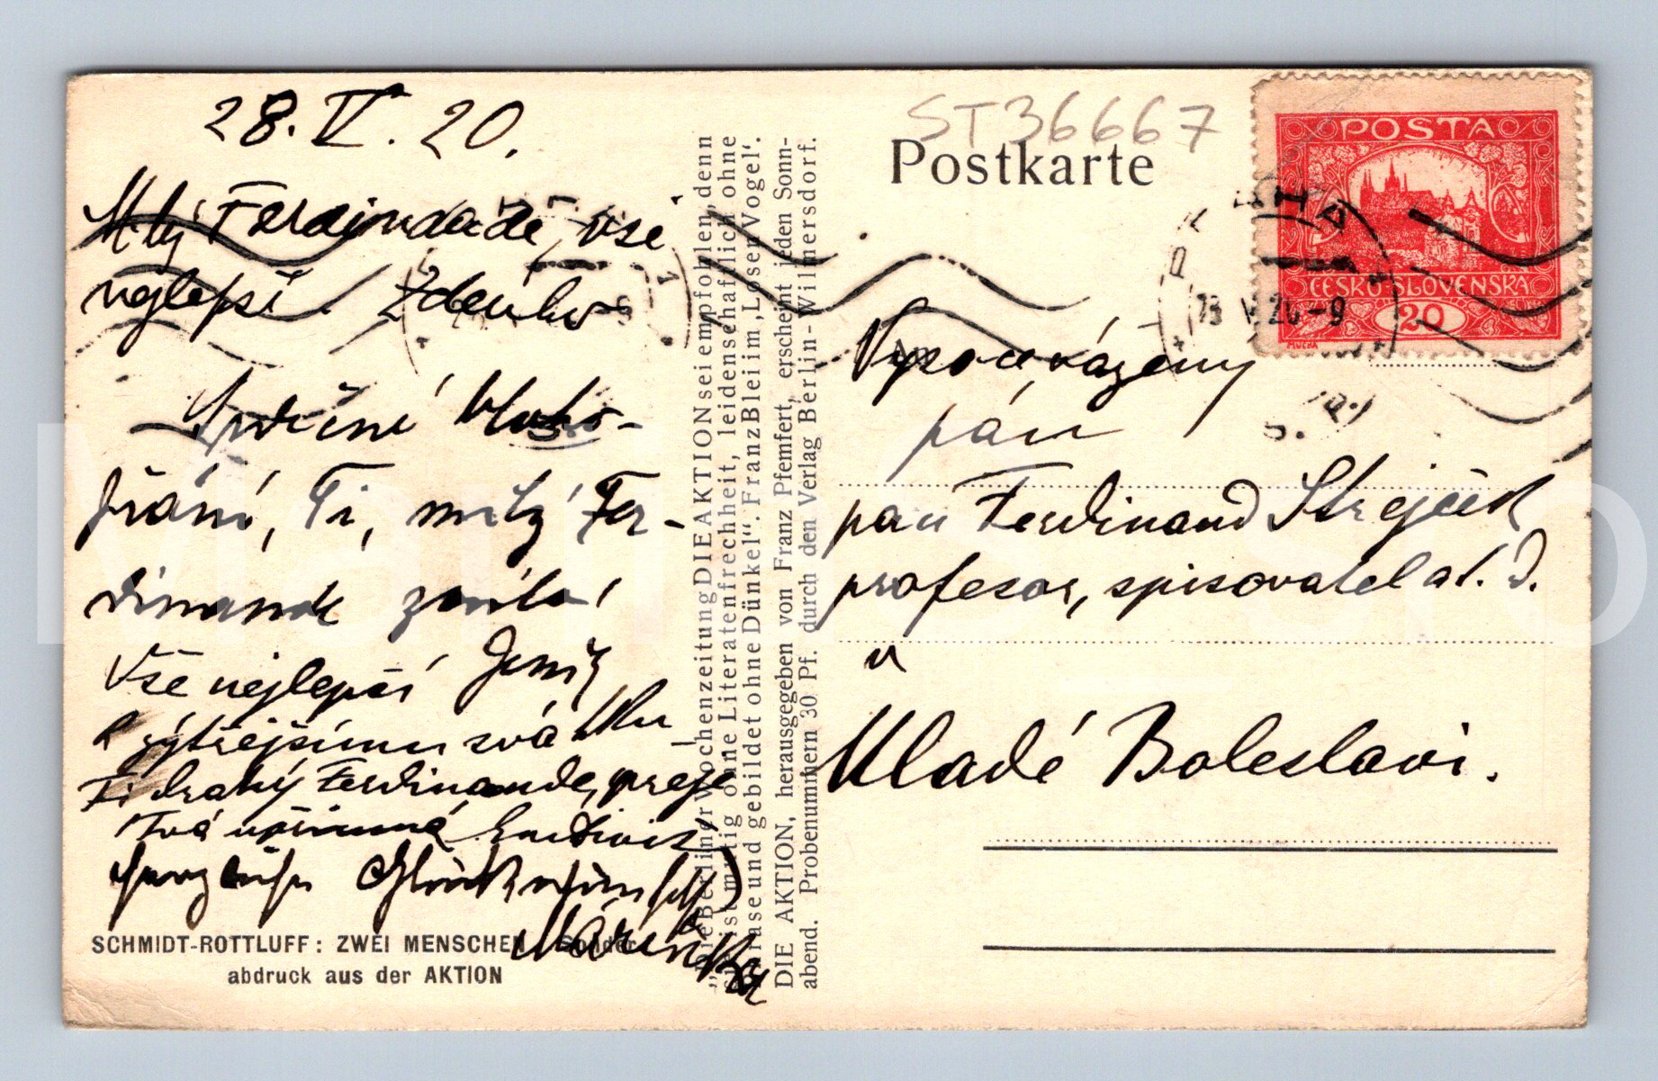 28. V. 20.
Milý Ferdinande, vše
nejlepší. Zdeňka
Srdečné blaho-
přání, Ti, milý Fer-
dinande zasílá
Jeník
Vše nejlepší
k zítřejšímu svátku
Ti drahý Ferdinande, přeje
Tvá upřímná
Mařenka
SCHMIDT-ROTTLUFF: ZWEI MENSCHEN Sonder-
abdruck aus der AKTION
„Die Berliner Wochenzeitung DIE AKTION sei empfohlen, denn
sie ist mutig ohne Literatenfrechheit, leidenschaftlich ohne
Phrase und gebildet ohne Dünkel“. Franz Blei im ‚Losen Vogel‘.
DIE AKTION, herausgegeben von Franz Pfemfert, erscheint jeden Sonn-
abend. Probenummern 30 Pf. durch den Verlag Berlin-Wilmersdorf.
ST36667
Postkarte
POSTA
ČESKO-SLOVENSKÁ
20
MUCHA
PRAHA
28 V 20-9
Vysocevážený
pán
pan Ferdinand Strejček
profesor, spisovatel at. d.
v
Mladé Boleslavi.